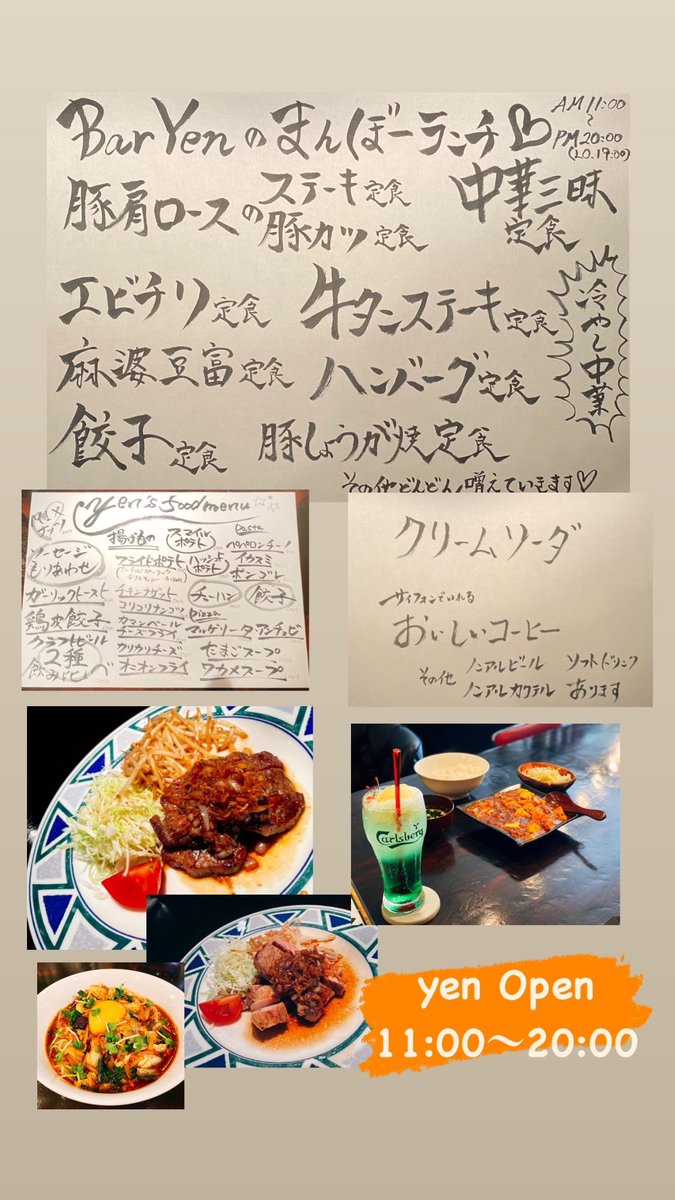 Bar Yenのまんぼーランチ♡
AM 11:00
〜
PM 20:00
(L.O.19:00)
豚肩ロースの
ステーキ定食
豚カツ定食
中華三昧
定食
エビチリ定食
牛タンステーキ定食
麻婆豆富定食
ハンバーグ定食
餃子定食
豚しょうが焼定食
冷やし中華
その他どんどん増えていきます♡
Yen's food menu
ソーセージ
もりあわせ
ガーリックトースト
鶏皮餃子
クラフトビール
12種
飲みほ
揚げもの
フライドポテト
チキンナゲット
コリコリナンコツ
カマンベール
チーズフライ
カリカリチーズ
オニオンフライ
スマイル
ポテト
ハッシュド
ポテト
チャーハン
餃子
Pasta
ペペロンチーノ
イカスミ
ボンゴレ
Pizza
マルゲリータ・アンチョビ
たまごスープ
ワカメスープ
クリームソーダ
サイフォンでいれる
おいしいコーヒー
その他
ノンアルビール
ソフトドリンク
ノンアルカクテル
あります
Carlsberg
yen Open
11:00〜20:00